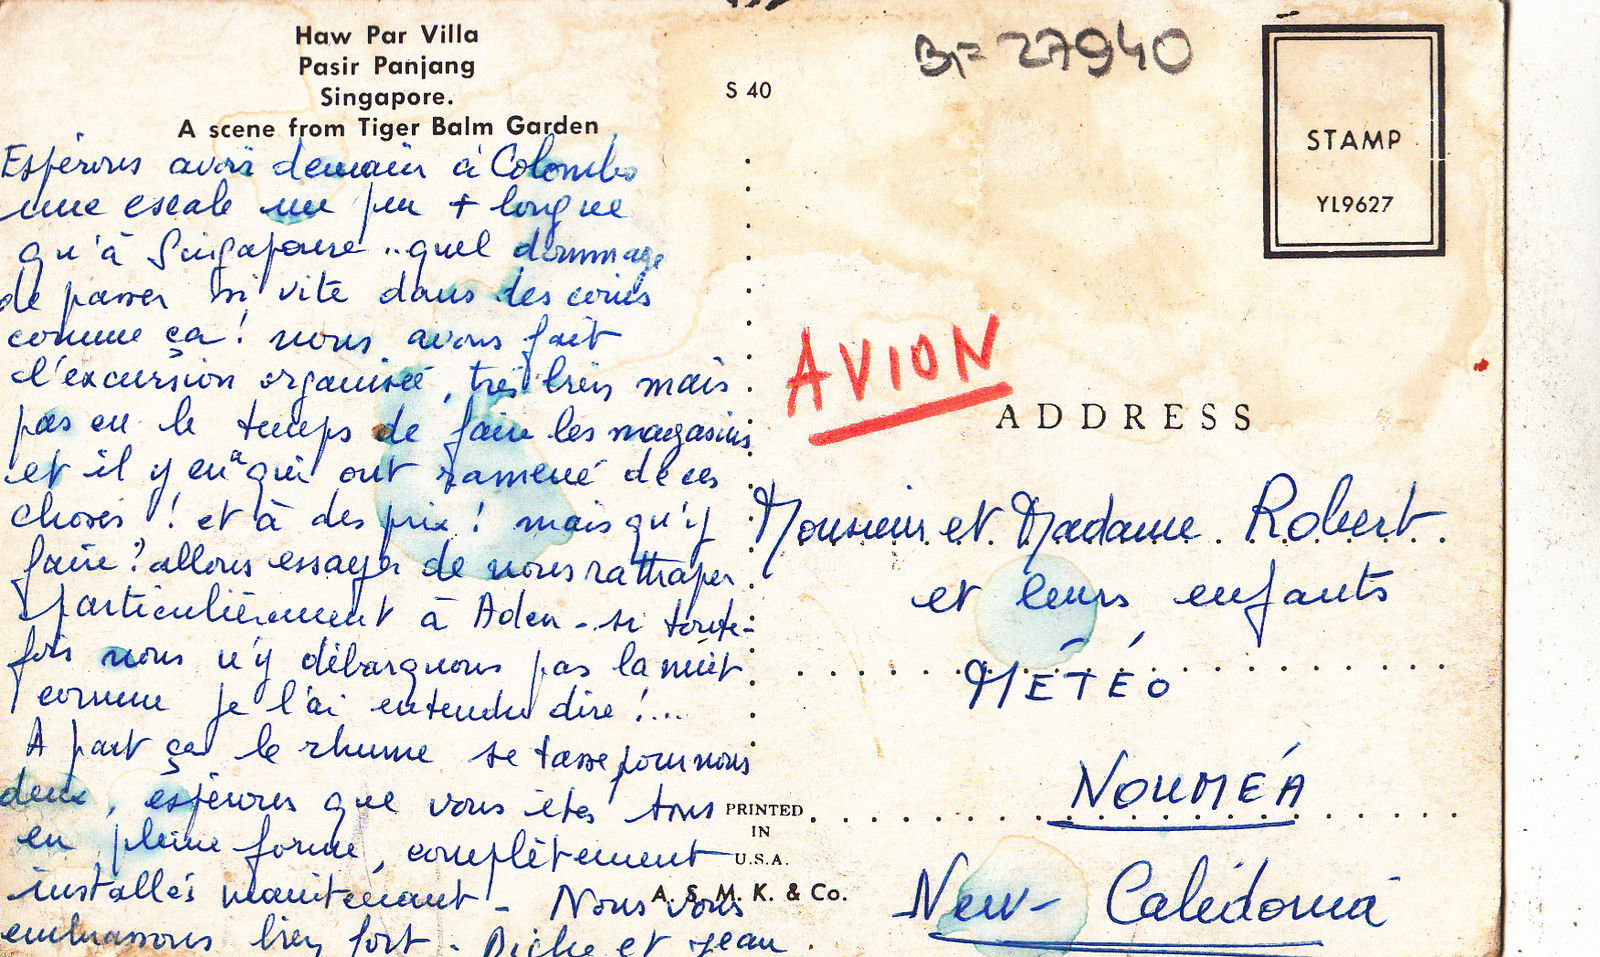 Haw Par Villa
Pasir Panjang
Singapore.
A scene from Tiger Balm Garden
Espérons avoir demain à Colombo
une escale un peu + longue
qu'à Singapoure .. quel dommage
de passer si vite dans des coins
comme ça ! nous avons fait
l'excursion organisée, très bien mais
pas eu le temps de faire les magasins
et il y en a qui ont ramené de ces
choses ! et à des prix ! mais qu'y
faire ? allons essayer de nous rattraper
particulièrement à Aden - si toute-
fois nous n'y débarquons pas la nuit
comme je l'ai entendu dire !...
A part ça le rhume se tasse pour nous
deux, espérons que vous êtes tous
en pleine forme, complètement
installés maintenant - Nous vous
embrassons bien fort - et Jean
S 40
27940
STAMP
YL9627
AVION
ADDRESS
Monsieur et Madame Robert
et leurs enfants
MÉTÉO
NOUMÉA
New-Calédonia
PRINTED
IN
U.S.A.
A. S. M. K. & Co.